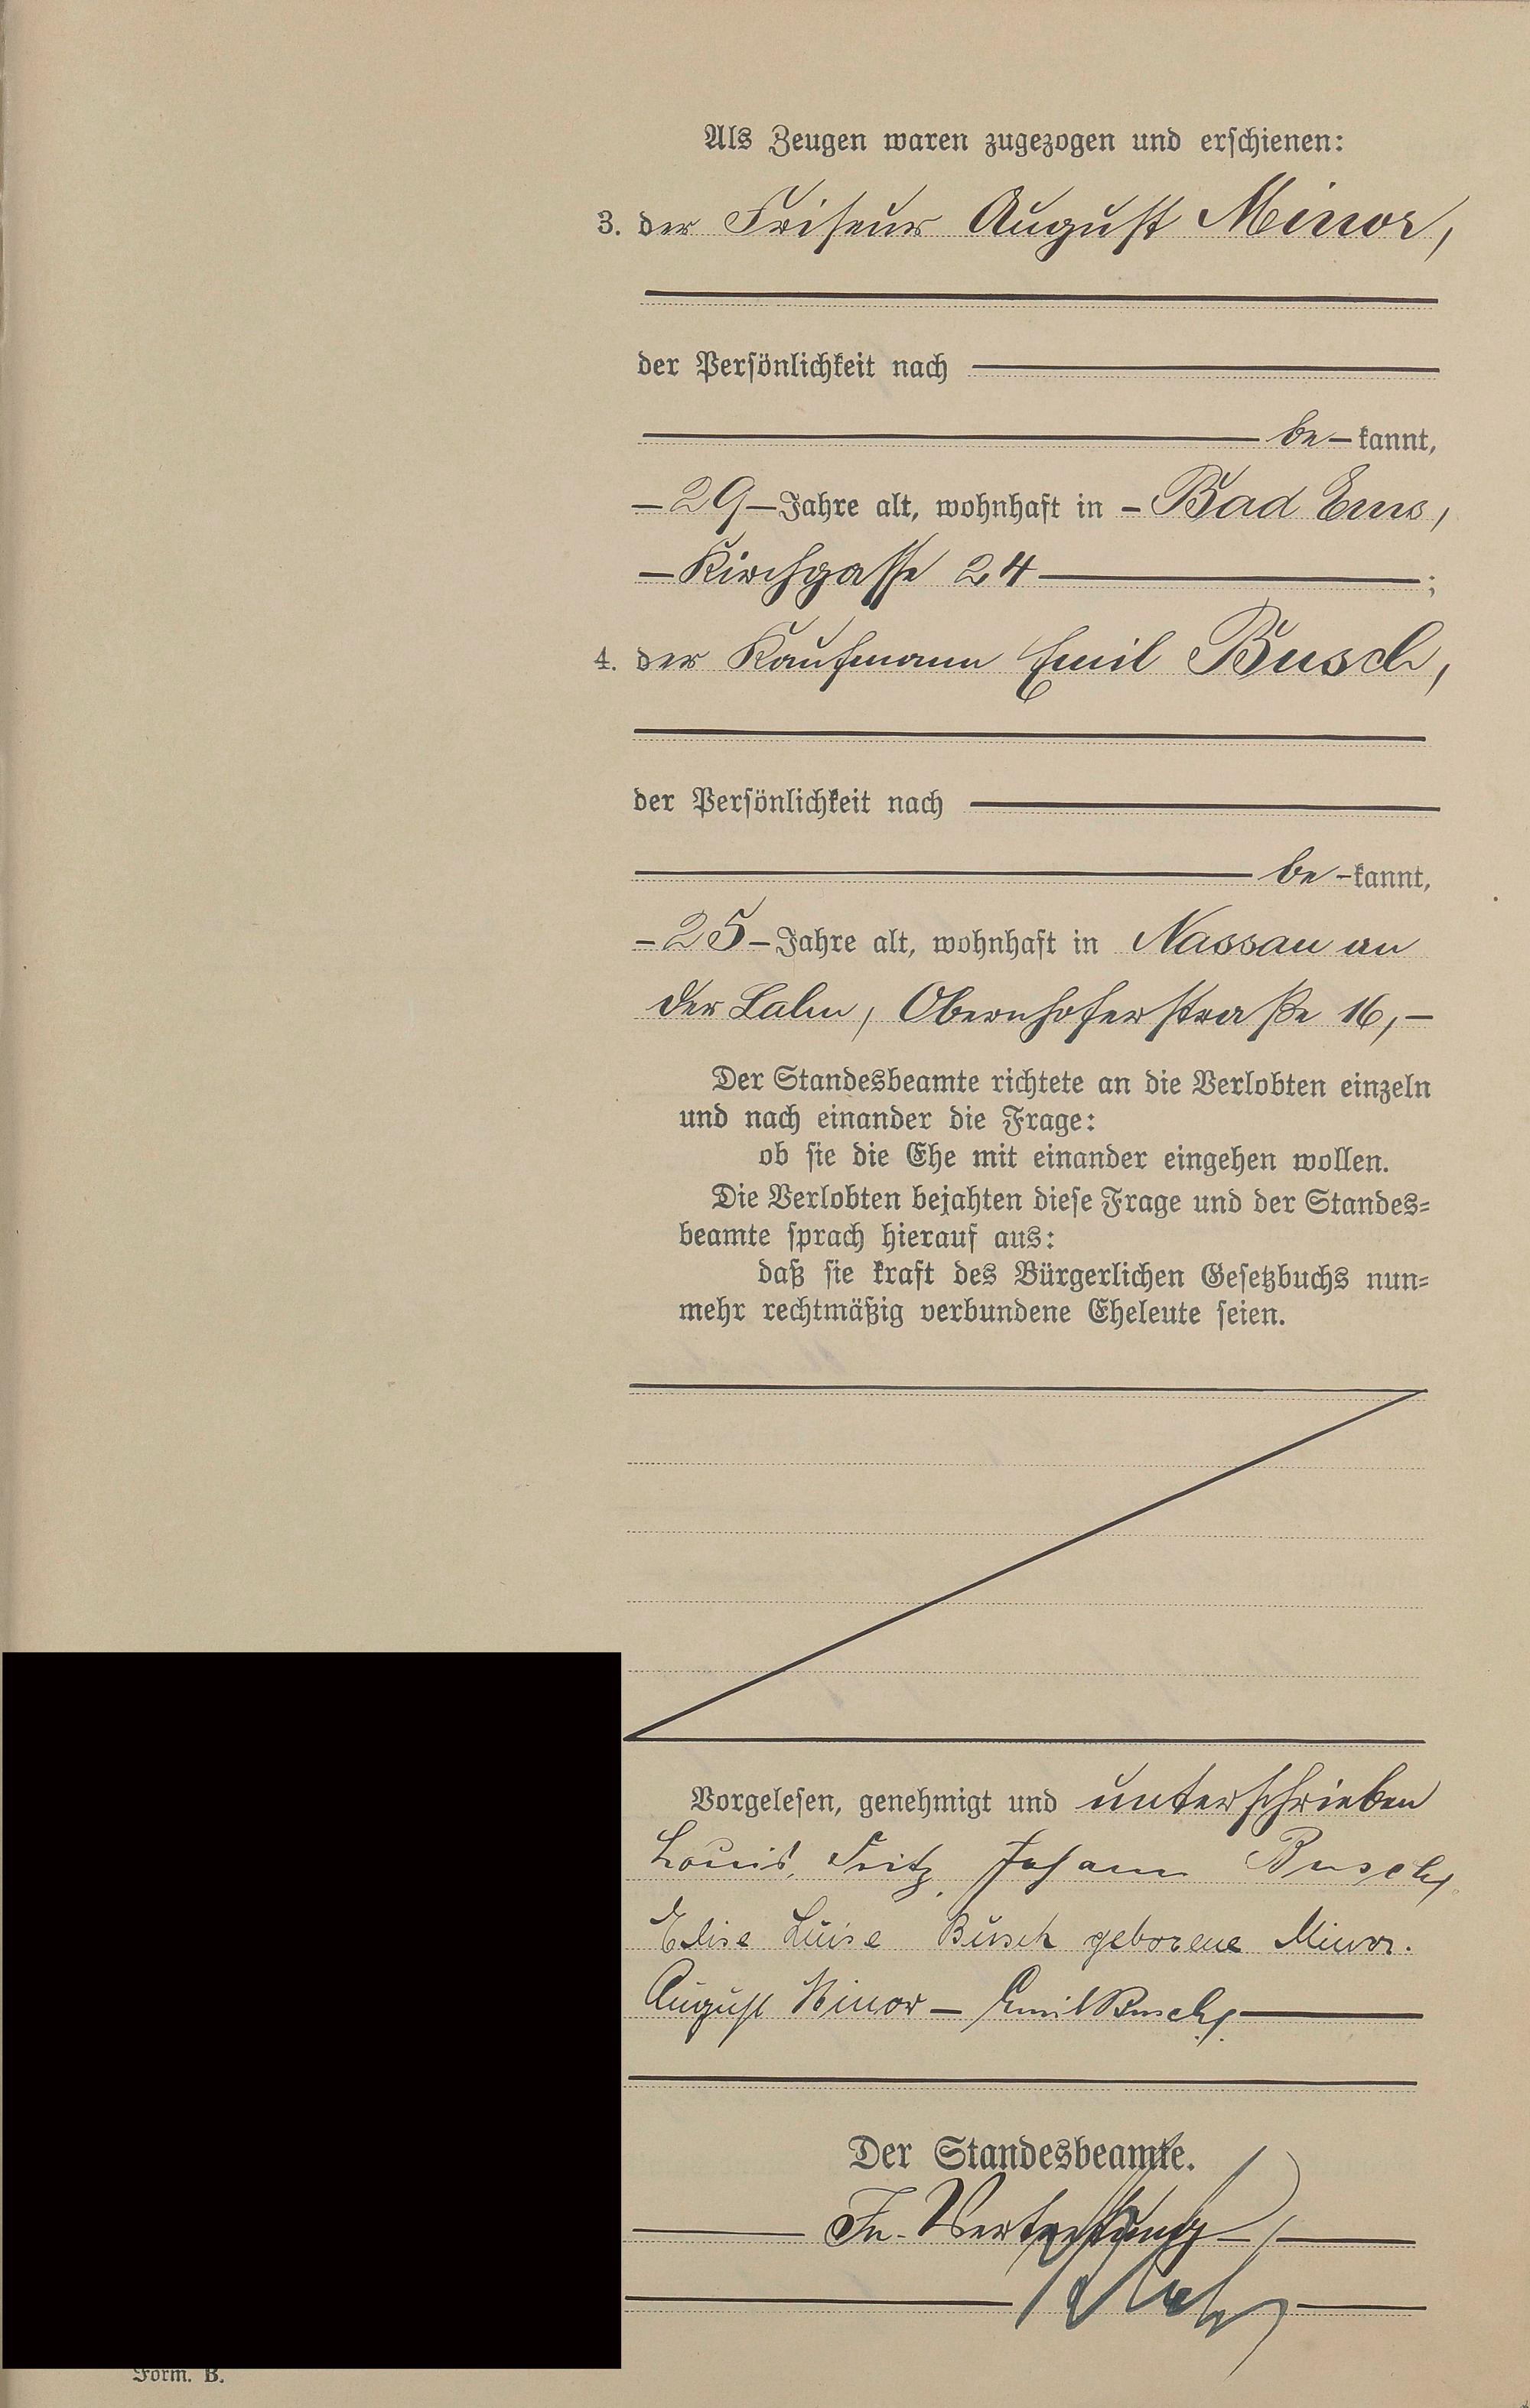 Als Zeugen waren zugezogen und erschienen:
3. der Friseur August Minor,
der Persönlichkeit nach
be-kannt,
-29-Jahre alt, wohnhaft in - Bad Ems,
-Kirchgasse 24;
4. der Kaufmann Emil Busch,
der Persönlichkeit nach
be-kannt,
-25-Jahre alt, wohnhaft in Nassau an
der Lahn, Obernhoferstraße 16,-
Der Standesbeamte richtete an die Verlobten einzeln
und nach einander die Frage:
ob sie die Ehe mit einander eingehen wollen.
Die Verlobten bejahten diese Frage und der Standes-
beamte sprach hierauf aus:
daß sie kraft des Bürgerlichen Gesetzbuchs nun-
mehr rechtmäßig verbundene Eheleute seien.
Vorgelesen, genehmigt und unterschrieben
Louis Fritz Johann Busch
Elise Luise Busch geborene Minor.
August Minor - Emil Busch
Der Standesbeamte.
In Vertretung
Form. B.